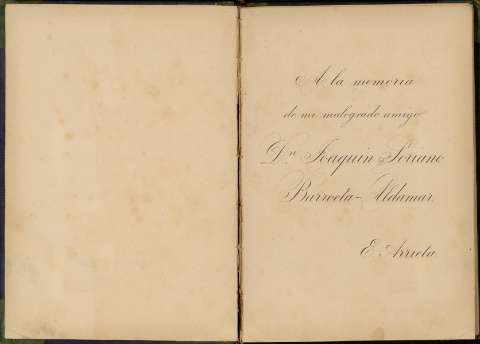 A la memoria
de mi malogrado amigo
Dn Joaquin Soriano
Barroeta-Aldamar
E. Arrieta.